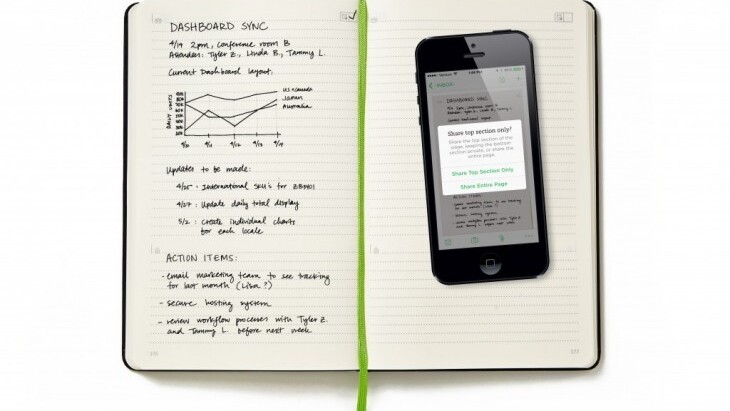 DASHBOARD SYNC
4/19 2pm, Conference room B
Attendees: Tyler Z., Linda B., Tammy L.
Current Dashboard layout:
US + Canada
Japan
Australia
DAILY USERS
Updates to be made:
4/25 - International SKU's for
4/27 : Update daily total display
5/2 : Create individual charts
for each locale
ACTION ITEMS:
- email marketing team to see tracking
for last month (Lisa?)
- secure hosting system
- review workflow processes with Tyler Z.
and Tammy L. before next week
INBOX
DASHBOARD SYNC
Share top section only?
Share the top section of the
page, keeping the bottom
section private, or share the
entire page.
Share Top Section Only
Share Entire Page
ACTION ITEMS: